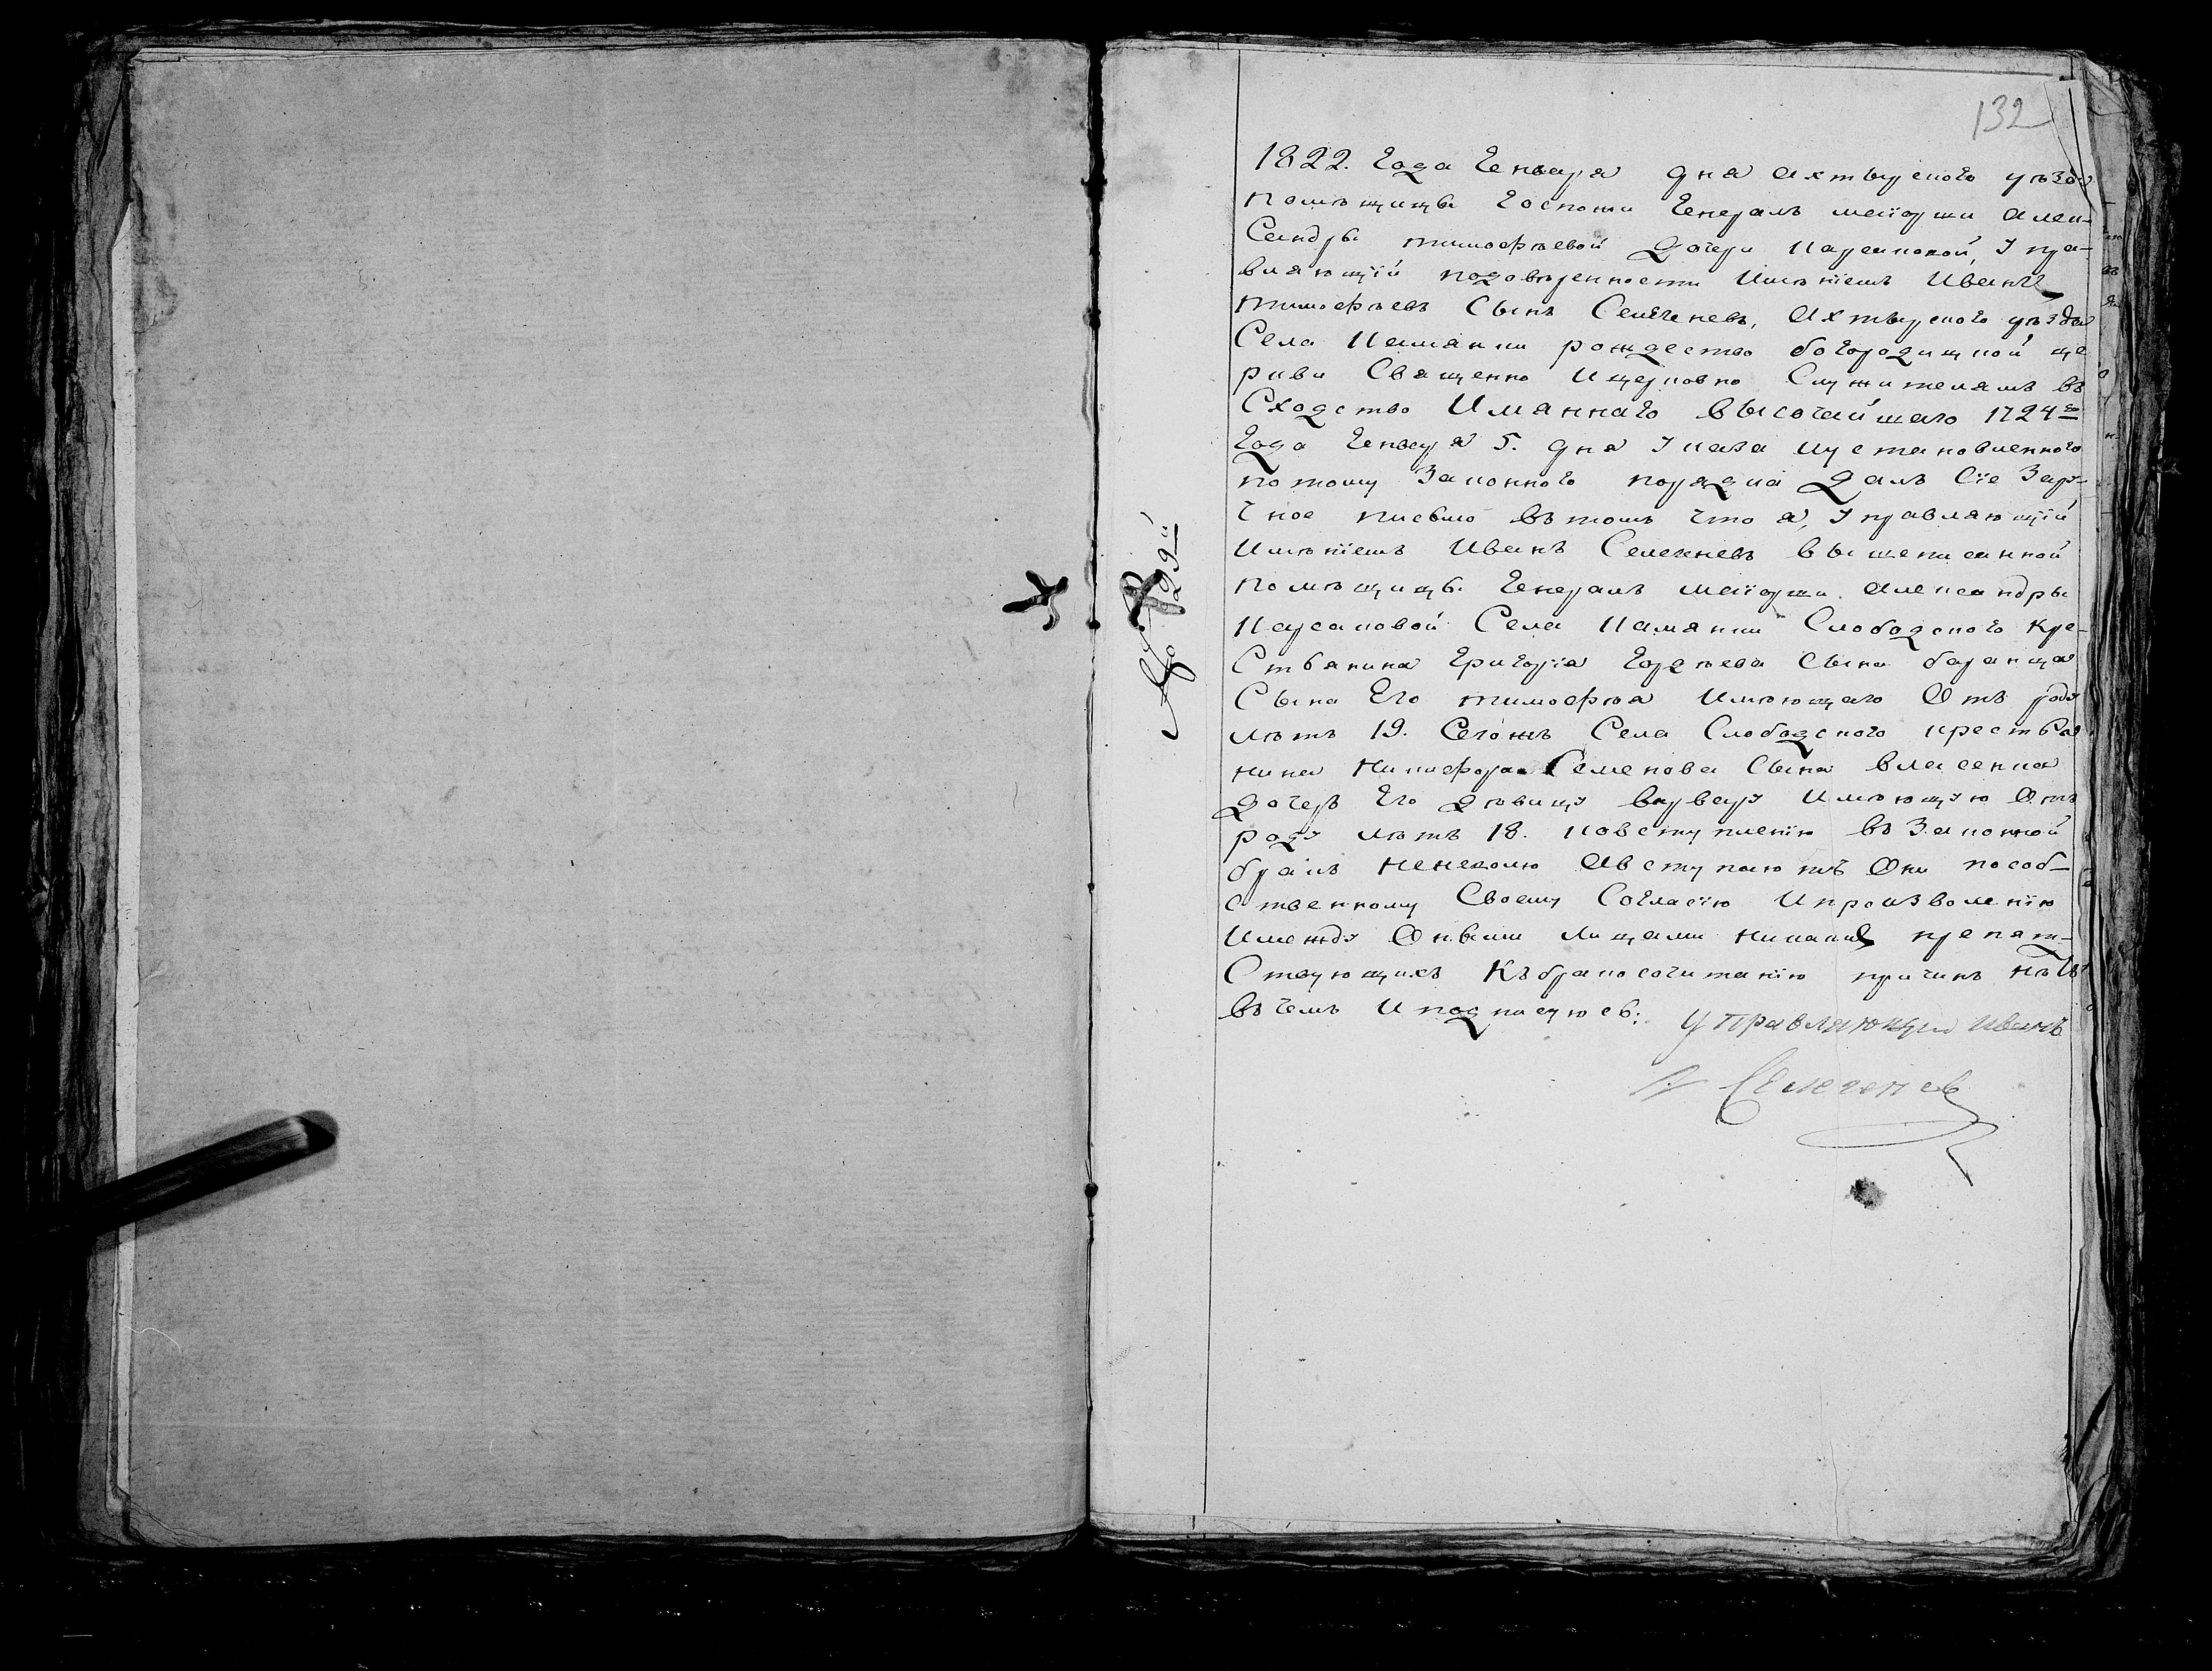 132
1822. Года Генваря дня Ахтырского уѣзда
помѣщицы Госпожи Генералъ маіорши Алек-
Сандры тимофѣевой Дочери Карсаковой, Упра-
вляющій подовѣренности Имѣніемъ Иванъ
тимофѣевъ Сынъ Селегеневъ, Ахтырского уѣзда
Села Камянки рождество богородицкой це
ркви Священно Ицерковно Служителямъ въ
Сходство Имяннаго высочайшаго 1724го
Года Генваря 5. дня Указа Иустановленного
потому Законного порядка Далъ Сіе Зару-
чное писмо втомъ что я, Управляющій
Имѣніемъ Иванъ Селегеневъ вышеписанной
помѣщицы Генералъ маіорши Александры
Карсаковой Села Камянки Слободского Кре-
Стьянина Григорія Гордѣева Сына баранца
Сына Его тимофѣя Имѣющаго Отъ роду
лѣтъ 19. Сегожъ Села Слободского крестья
нина Никифора Семенова Сына власенка
дочерь Его дѣвицу варвару Имѣющую Отъ
роду лѣтъ 18. ковступленію въ Законной
бракъ неневолю Авступаютъ Они пособ-
ственному Своему Согласію Ипроизволенію
Имежду Оными лицами никакихъ препят-
Ствующихъ Къбракосочитанію причинъ нѣтъ
вчемъ Иподписуюсь: Управляющий иванъ
Селегенев
№ 29й